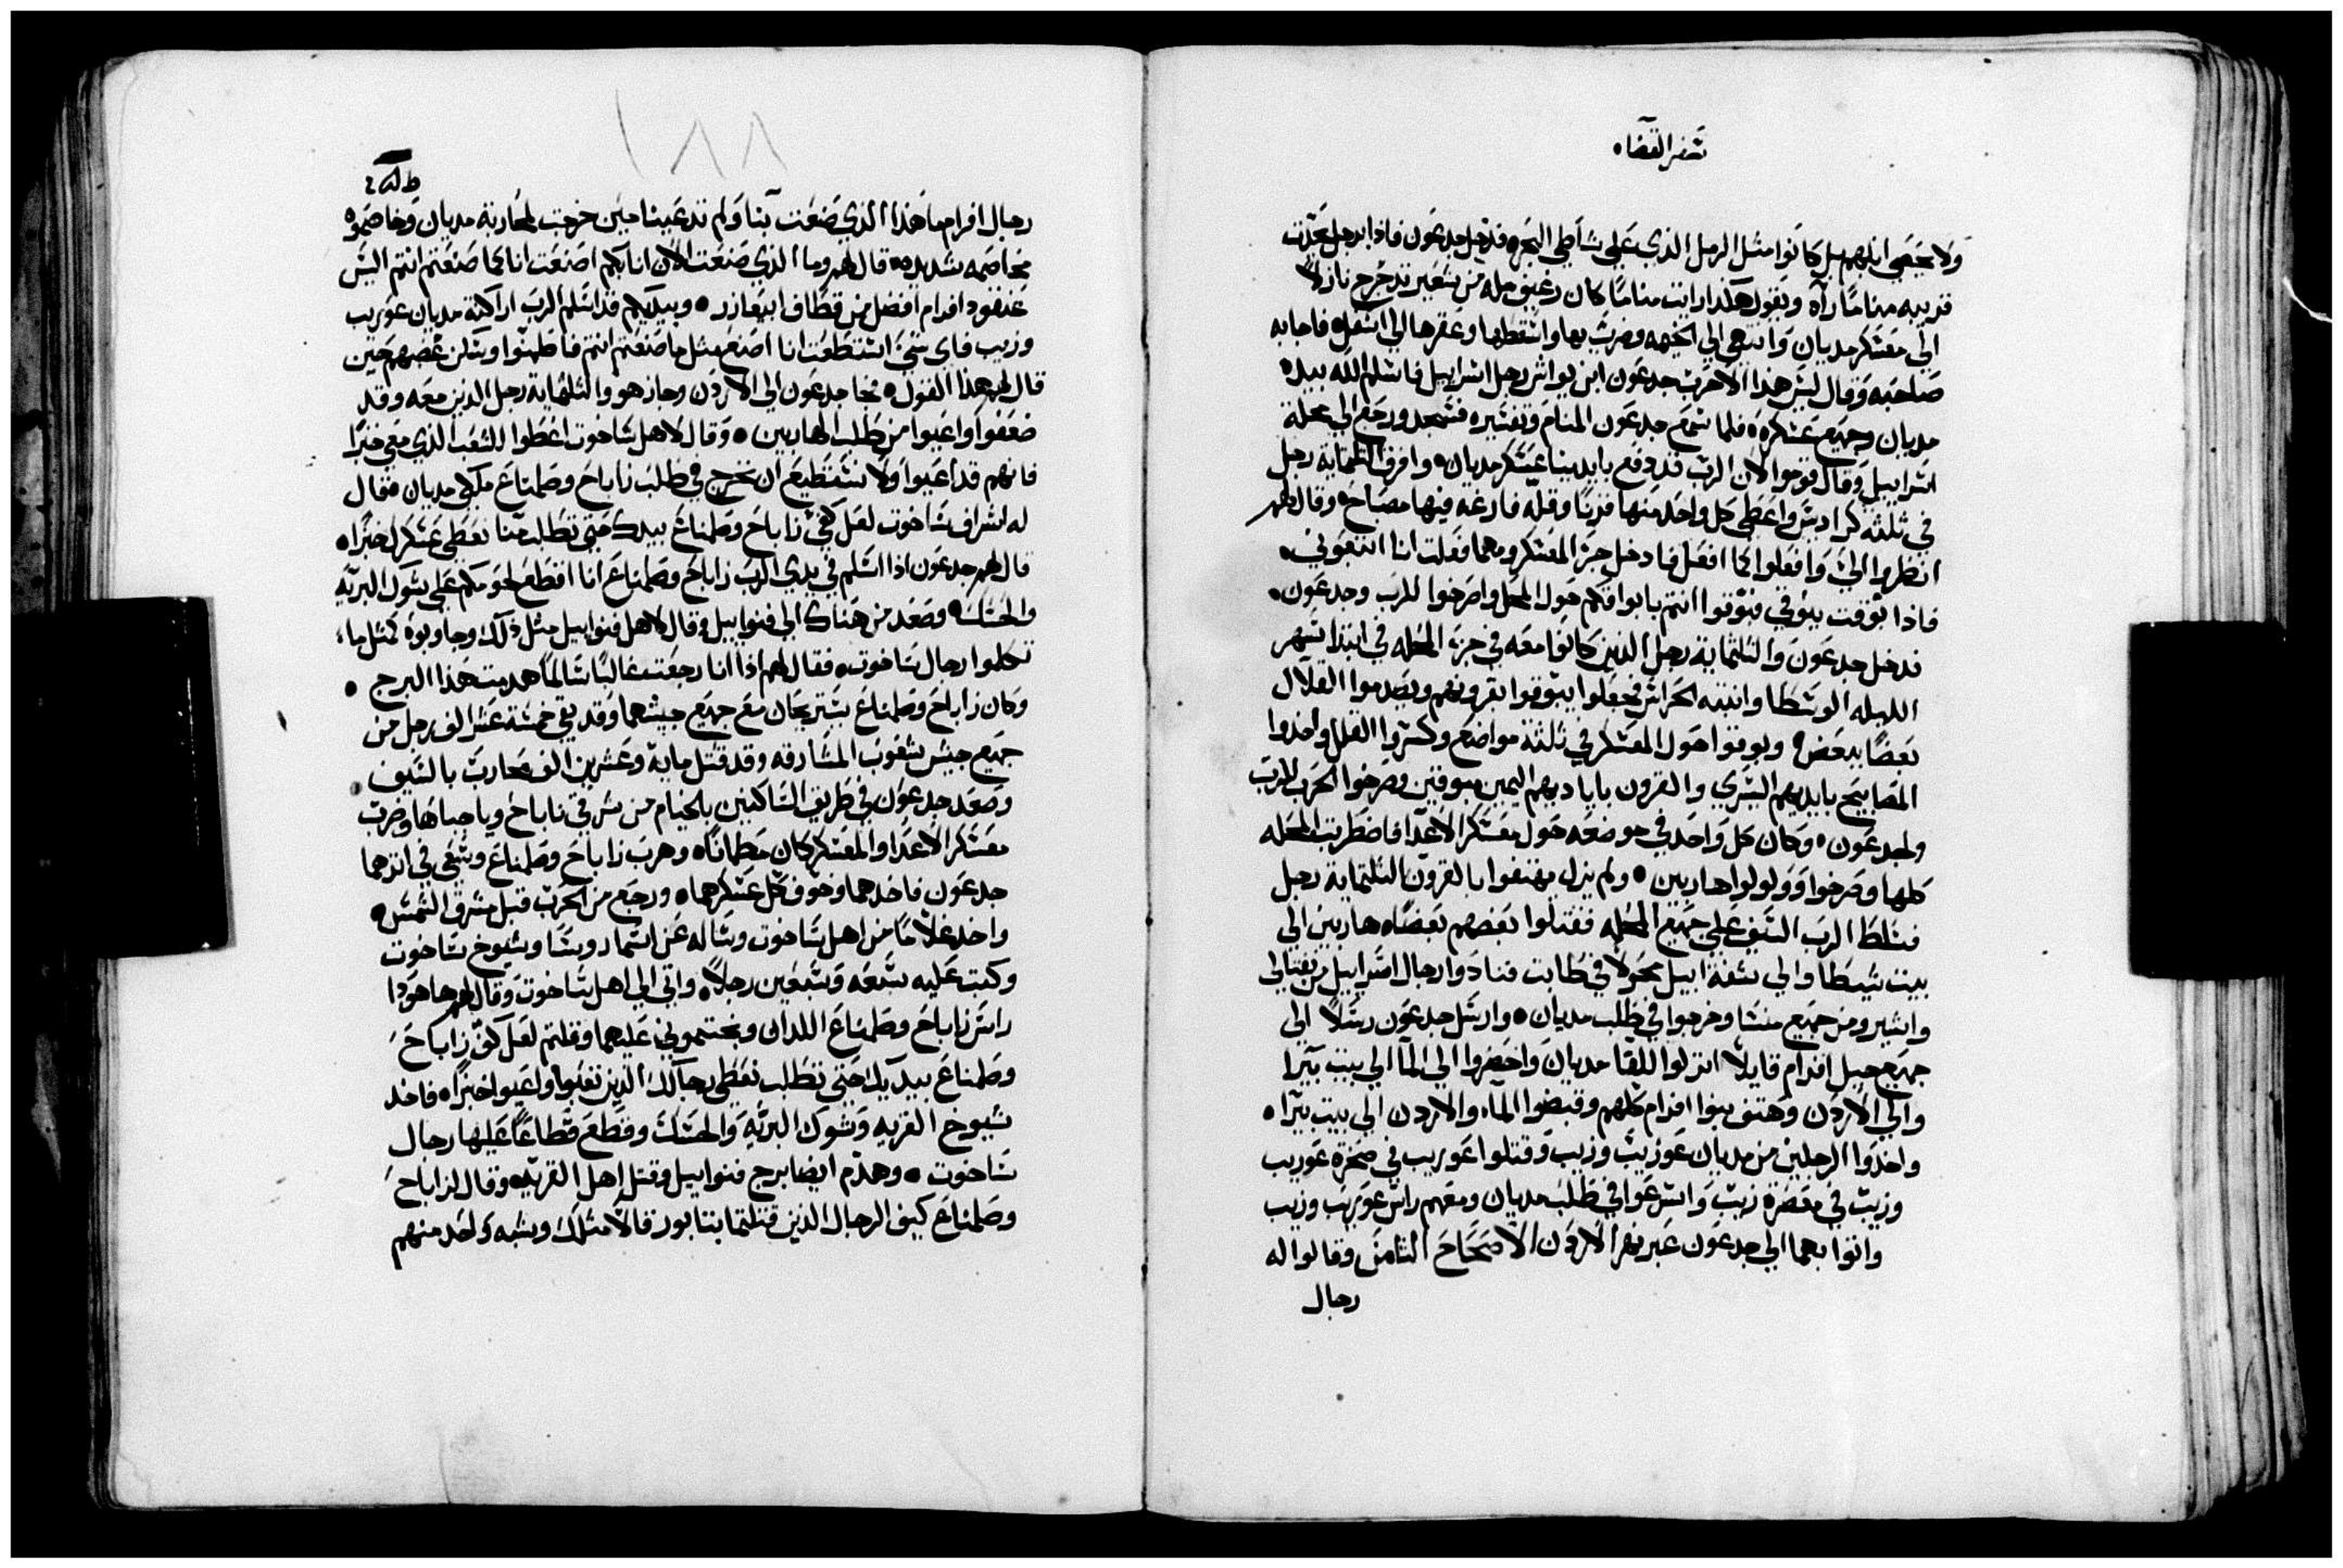 سفر القضاه
ولا تحصي ابلهم بل كانوا مثل الرمل الذي علي شاطي البحر فدخل جدعون فاذا برجل يحدث
قريبه مناما رآه ويقول هكذا رايت مناما كان رغيف مله من شعير تدحرج نازلا
الي معسكر مديان وانتهي الي الخيمه وضرب بها واسقطها وعقرها الي اسفل فاجابه
صاحبه وقال ليس هذا الا حرب جدعون ابن يواش رجل اسراييل فاسلم الله بيده
مديان وجميع عسكره فلما سمع جدعون المنام وتفسيره فسجد ورجع الي محلة
اسراييل وقال قوموا لان الرب قد دفع بايدينا عسكر مديان وافرق الثلثماية رجل
في ثلثه كراديس واعطي كل واحد منها قرنا وقله فارغه فيها مصباح وقال لهم
انظروا الي وافعلوا كما افعل فادخل جزء المعسكر ومهما فعلت انا اتبعوني
فاذا بوقت ببوقي فبوقوا انتم بابواقكم حول المحله واصرخوا للرب وجدعون
فدخل جدعون والثلثماية رجل الذين كانوا معه في جزء المحله في ابتدا سهر
الليله الوسطا وانتبه الحراس فجعلوا يبوقوا بقرونهم ويصدموا القلال
بعضا ببعض وبوقوا حول المعسكر في ثلثة مواضع وكسروا القلل واخذوا
المصابيح بايديهم اليسري والقرون باياديهم اليمين مبوقين وصرخوا الحرب للرب
ولجدعون وكان كل واحد في موضعه حول معسكر الاعدا فاضطربت المحله
كلها وصرخوا وولولوا هاربين ولم يزل يهتفوا بالقرون الثلثماية رجل
فسلط الرب السيف علي جميع المحله فقتلوا بعضهم بعضا هاربين الي
بيت شيطا والي شفة ابيل محولا في طابت فنادوا رجال اسراييل من نفتالي
واشير ومن جميع منسا وخرجوا في طلب مديان وارسل جدعون رسلا الي
جميع جبل افرام قايلا انزلوا للقا مديان واحضروا الي الما الي بيت بيرا
والي الاردن وهتف بنوا افرام كلهم وقبضوا الماء والاردن الي بيت بيرا
واخذوا الرجلين من مديان عوزيب وزيب وقتلوا عوريب في صخرة عوريب
وزيب في معصرة زيب واسرعوا في طلب مديان ومعهم راس عوريب وزيب
واتوا بهما الي جدعون عبر نهر الاردن الاصحاح الثامن وقالوا له
رجال
١٨٨
رجال افرام ما هذا الذي صنعت بنا ولم تدعينا حين خرجت لمحاربة مديان وخاصموه
مخاصمه شديده قال لهم وما الذي صنعت الان انا بكم اصنعت انا كما صنعتم انتم اليس
عنقود افرام افضل من قطاف ابيعازر وبيديكم قد اسلم الرب اراكنة مديان عوريب
وزيب فاي شي استطعت انا اصنع مثل ما صنعتم انتم فاطمنوا وسكن غضبهم حين
قال لهم هذا القول فجا جدعون الي الاردن وجاز هو والثلثماية رجل الذين معه وقد
ضعفوا واعيوا من طلب الهاربين وقال لاهل ساخوت اعطوا للشعب الذي معي خبزا
فانهم قد اعيوا ولا نستطيع ان نخرج في طلب زاباح وصلمناع ملكي مديان فقال
له اشراف ساخوت لعل كفي زاباح وصلمناع بيدك حتي تطلب منا نعطي عسكرك خبزا
قال لهم جدعون اذا اسلم في يدي الرب زاباح وصلمناع انا اقطع لحومكم علي شوك البريه
والحسك وصعد من هناك الي فنواييل وقال لاهل فنواييل مثل ذلك وجاوبوه كمثل ما
تكلموا رجال ساخوت فقال لهم اذا انا رجعت غالبا سالما هدمت هذا البرج
وكان زاباح وصلمناع يستريحان مع جميع جيشهما وقد بقي خمسة عشر الف رجل من
جميع جيش شعوب المشارقه وقد قتل ماية وعشرين الف محارب بالسيف
وصعد جدعون في طريق الساكنين بالخيام من شرقي ناباح وياجباها وضرب
معسكر الاعدا والمعسكر كان مطمانا وهرب زاباح وصلمناع وسعي في اثرهما
جدعون فاخدهما وخوف كل عسكرهما ورجع من الحرب قبل مشرق الشمس
واخد غلاما من اهل ساخوت وساله عن اسما روسا وشيوخ ساخوت
وكتب عليه سبعه وسبعين رجلا واتي الي اهل ساخوت وقال لهم ها هودا
راس زاباح وصلمناع اللدان وبختموني عليهما وقلتم لعل كف زاباح
وصلمناع بيديك حتي تطلب نعطي رجالك الذين تعبوا واعيوا خبزا فاخد
شيوخ القريه وشوك البريه والحسك وقطع قطاعا عليها رجال
ساخوت وهدم ايضا برج فنواييل وقتل اهل القريه وقال لزاباح
وصلمناع كيف الرجال الذين قتلتما بتابور قالا مثلك وشبه واحد منهم